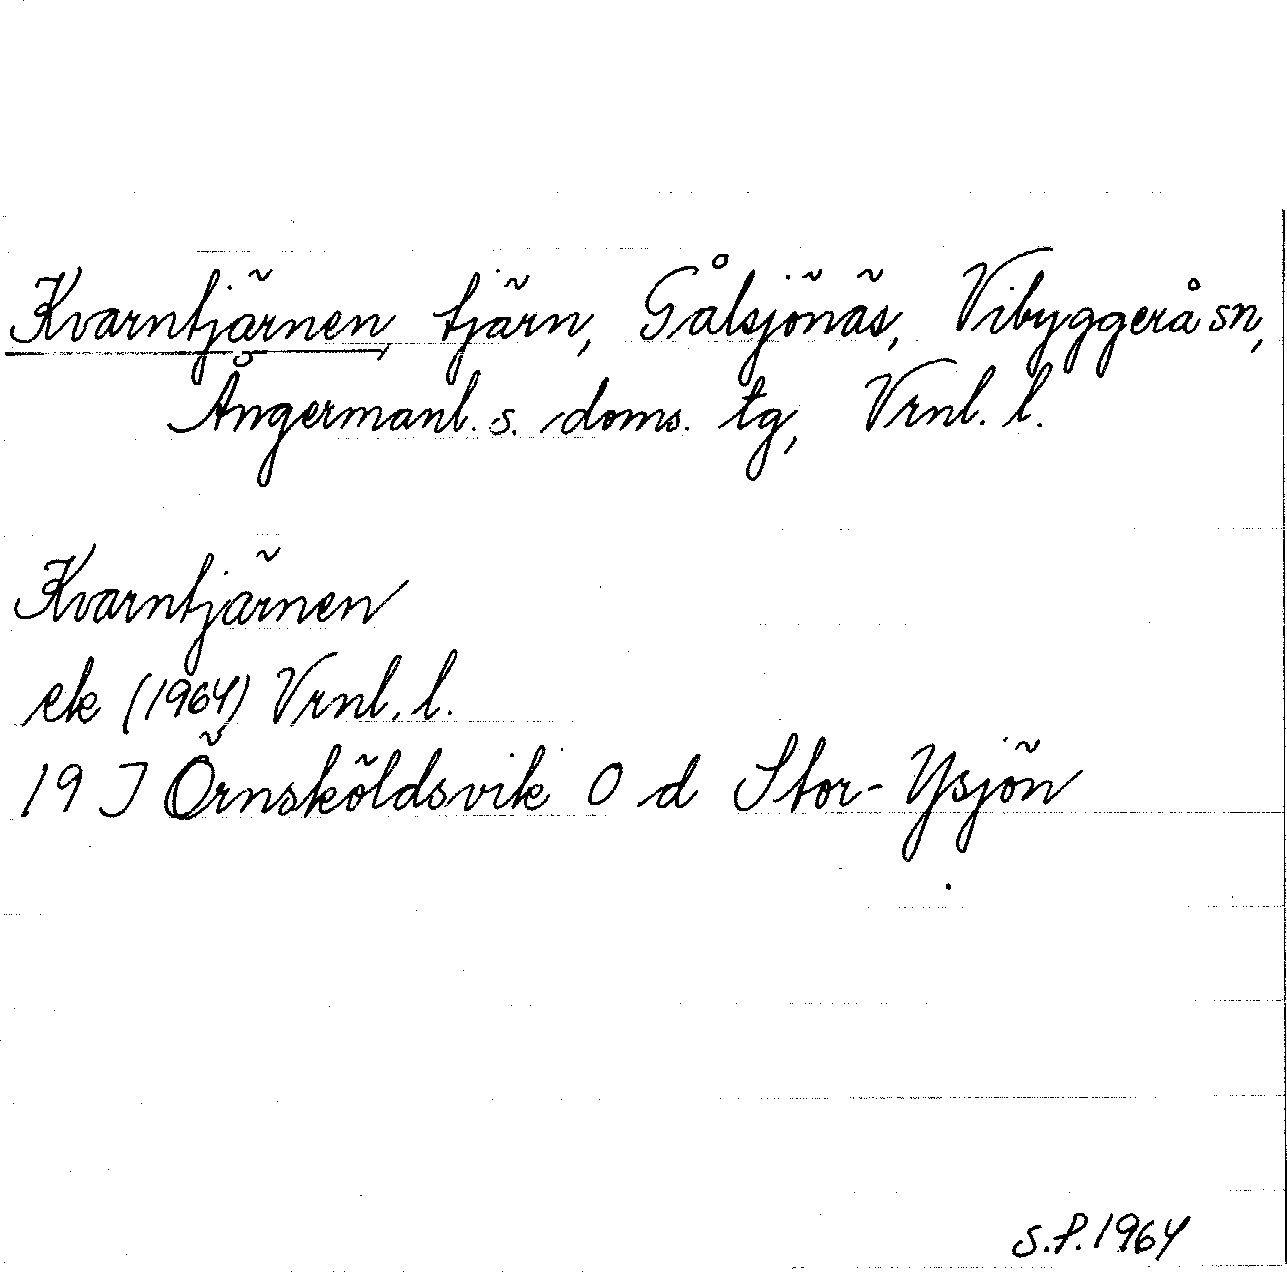 Kvarntjärnen, tjärn, Gålsjönäs, Vibyggerå sn,
Ångermanl. s. doms. tg, Vrnl. l.
Kvarntjärnen
ek (1964) Vrnl. l.
19 J Örnsköldsvik 0 d Stor-Ysjön
S.P. 1964